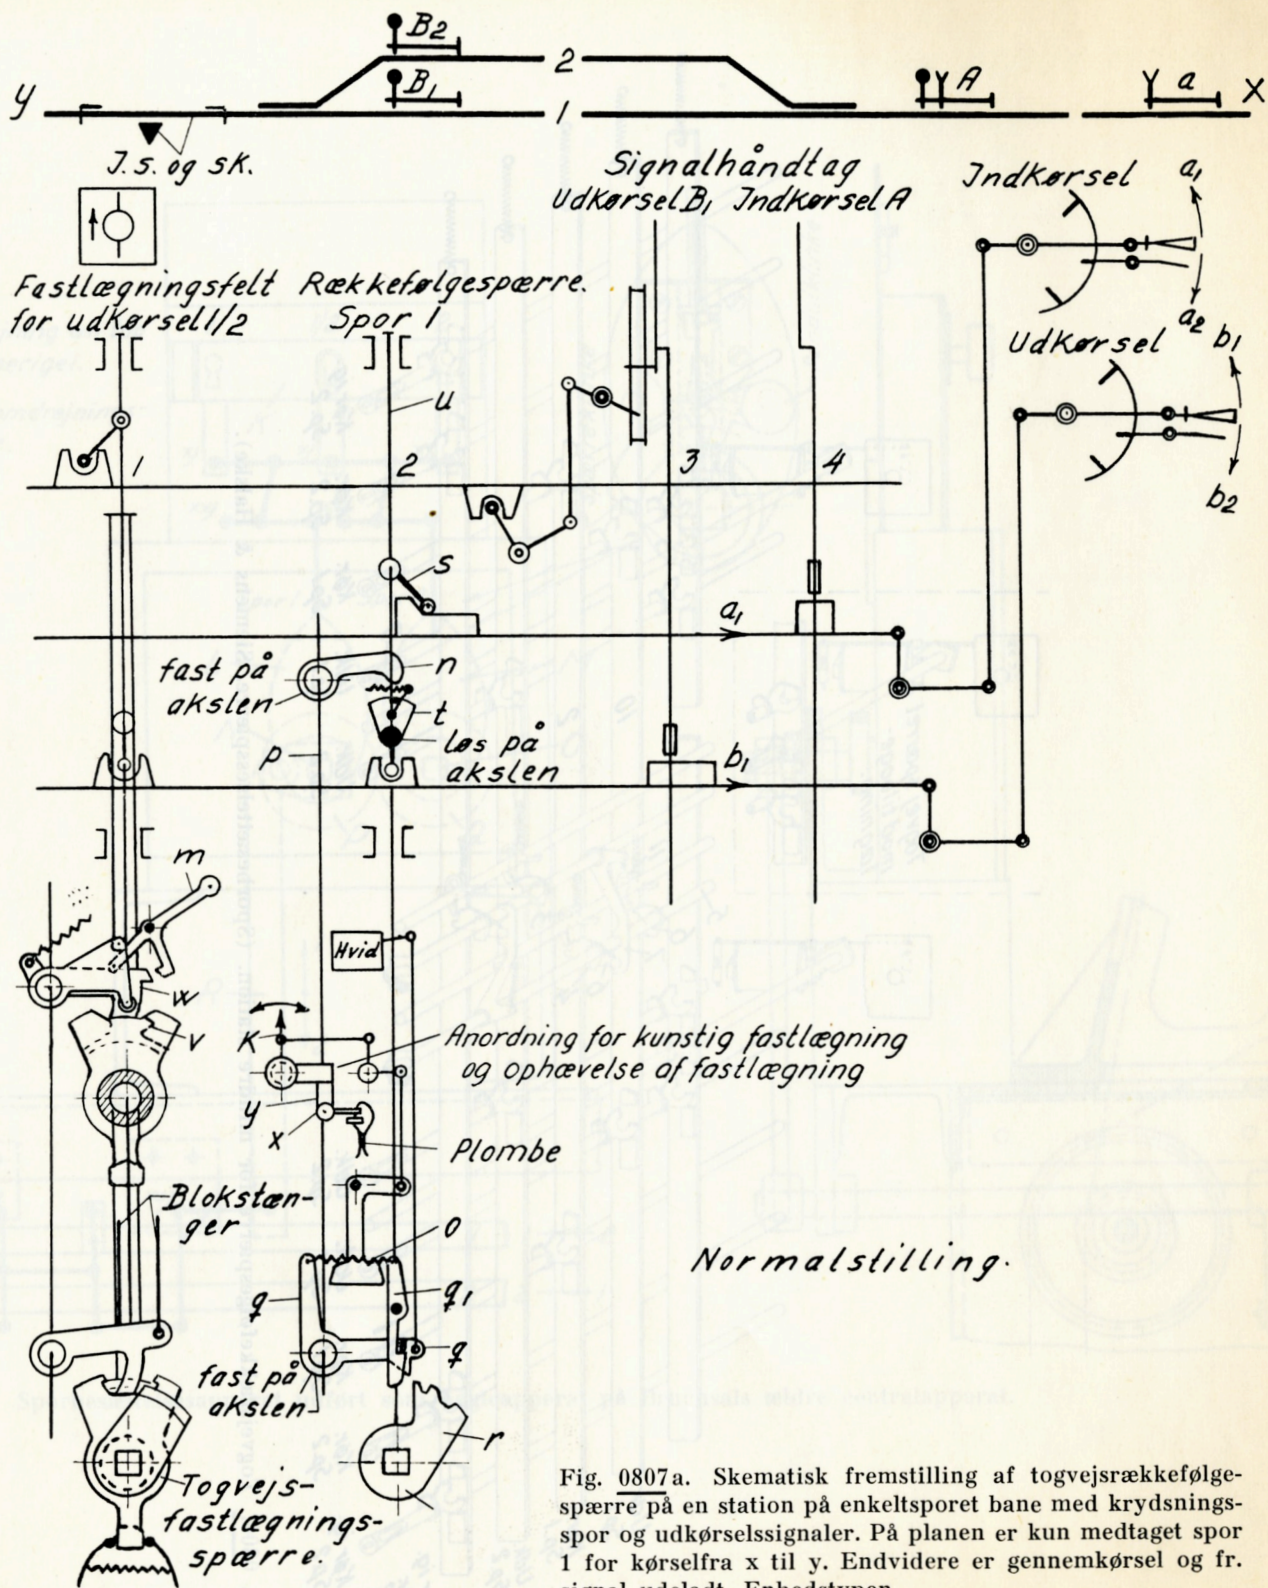 B2
2
B1
A
a
y
1
X
J.s. og sk.
Signalhåndtag
Udkørsel B1 Indkørsel A
Indkørsel
a1
a2
Fastlægningsfelt
for udkørsel 1/2
Rækkefølgespærre.
Spor 1
Udkørsel
b1
b2
u
1
2
3
4
s
a1
fast på
akslen
n
t
løs på
akslen
p
b1
m
Hvid
w
v
K
Anordning for kunstig fastlægning
og ophævelse af fastlægning
y
x
Plombe
Blokstæn-
ger
o
Normalstilling.
q
q1
q
fast på
akslen
r
Togvejs-
fastlægnings-
spærre.
Fig. 0807a. Skematisk fremstilling af togvejsrækkefølge-
spærre på en station på enkeltsporet bane med krydsnings-
spor og udkørselssignaler. På planen er kun medtaget spor
1 for kørselfra x til y. Endvidere er gennemkørsel og fr.